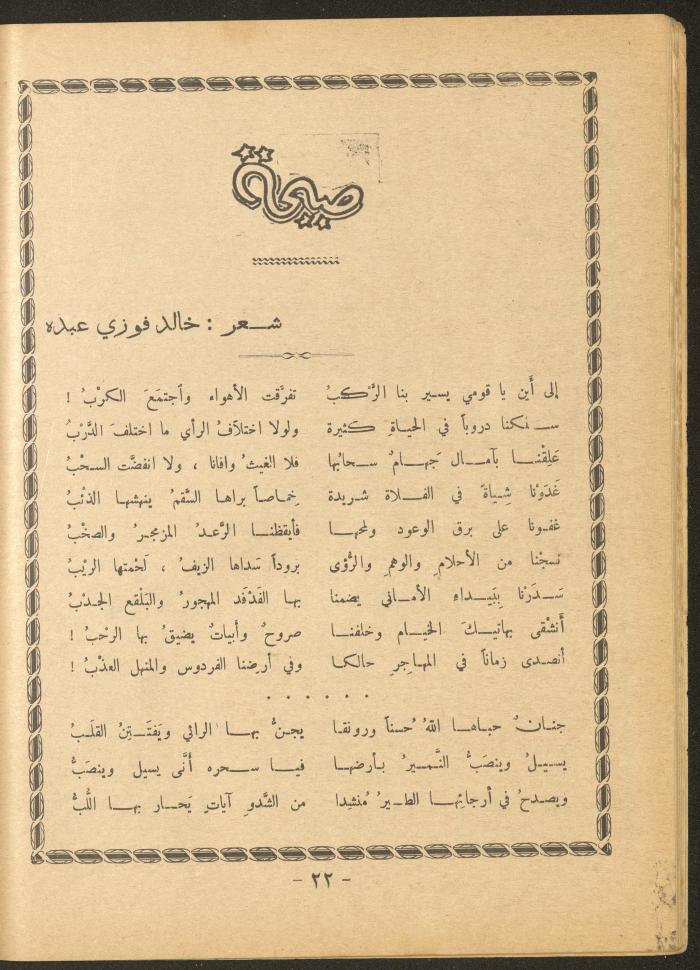 صيحة
شعر : خالد فوزي عبده
إلى أَين يا قومي يسير بنا الرَّكبُ تفرَّقت الأهواء وأجتمَعَ الكرْبُ !
سلكنا دروباً في الحياةِ كثيرة ولولا اختلافُ الرأي ما اختلفَ الدَّرْبُ
عَلِقْنا بآمال جَهامٌ سحابُها فلا الغيثُ وافانا ، ولا انفضَّت السحْبُ
غَدَوْنا شِياهً في الفلاة شريدة خِماصاً براها السَّقمُ ينهشها الذئبُ
غفونا على برق الوعود ولمحها فأيقظنا الرَّعدُ المزمجرُ والصخْبُ
نسجْنا من الأحلامِ والوهمِ والرُّؤى بروداً سَداها الزيفُ ، لَحْمتها الريْبُ
سَدَرْنا ببَيداءِ الأماني يضمنا بها الفَدْفَد المهجورُ والبَلْقع الجدْبُ
أَنشْقى بهاتيكَ الخيام وخلفنا صروحٌ وأبياتٌ يضيقُ بها الرحْبُ !
أنصدى زماناً في المهاجرِ حالكا وفي أرضِنا الفردوس والمنهل العذْبُ !
. . . . . .
جنانٌ حباها اللهُ حُسناً ورونقا يجنُّ بها الرائي ويَفتَتِنُ القلَبُ
يسيلُ وينصَبُّ النَّميرُ بأرضها فيا سحره أَنَّى يسيل وينصَبُّ
ويصدحُ في أرجائِها الطيرُ مُنشِدا من الشَّدوِ آياتٍ يَحار بها اللُّبُّ
- ٢٢ -